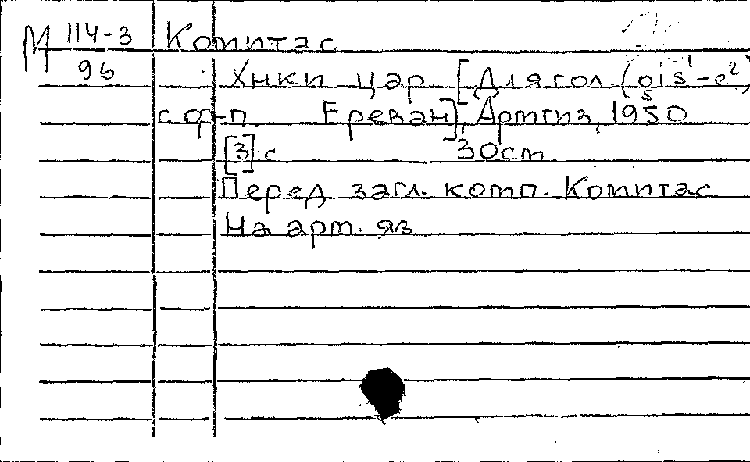 М 114-3 Комитас
96 Хнки цар [Для гол (gis¹-e²)
с ф-п. Ереван], Армгиз, 1950
[3] с 30см.
Перед загл. комп. Комитас
На арм. яз